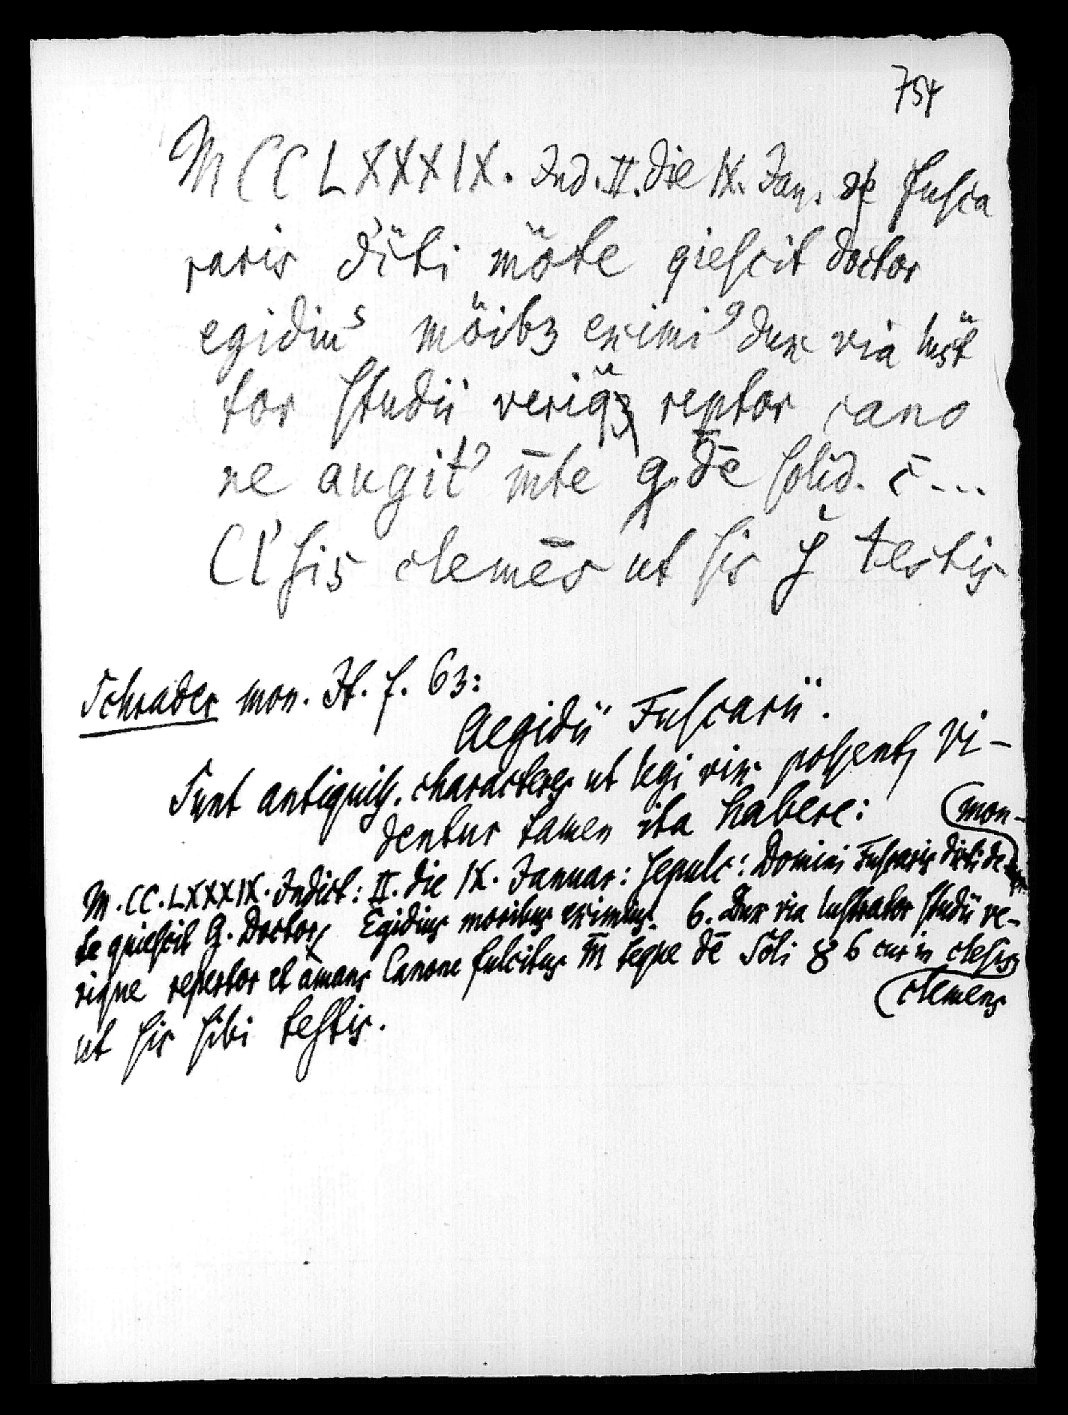 754
MCCLXXXIX. Ind. II. Die IX. Jan. de Fusca
raris dc̄ti mōte qiescit doctor
egidiuˢ mōibꝫ eximiꝰ dux via lust̄
tor studii veriqꝫ reptor cano
ne augitꝰ m̄te q dē solid. c̄ ...
Cl'sis clemēs ut sis testis
Schrader mon. It. f. 63:
Aegidii Fuscarii.
Sunt antiquiss. characteres ut legi vix possent, vi-
dentur tamen ita habere:
M.CC.LXXXIX. Indict: II. die IX. Januar: Sepulc: Domini Fuscaris dicti de mon-
te quiescit G. Doctor, Egidius moribus eximius. G. Dux via lustrator studii ve-
rique repertor et amans Canone fulcitus m̄ teque dē Soli & b cur in clesis
clemens
ut sis sibi testis.